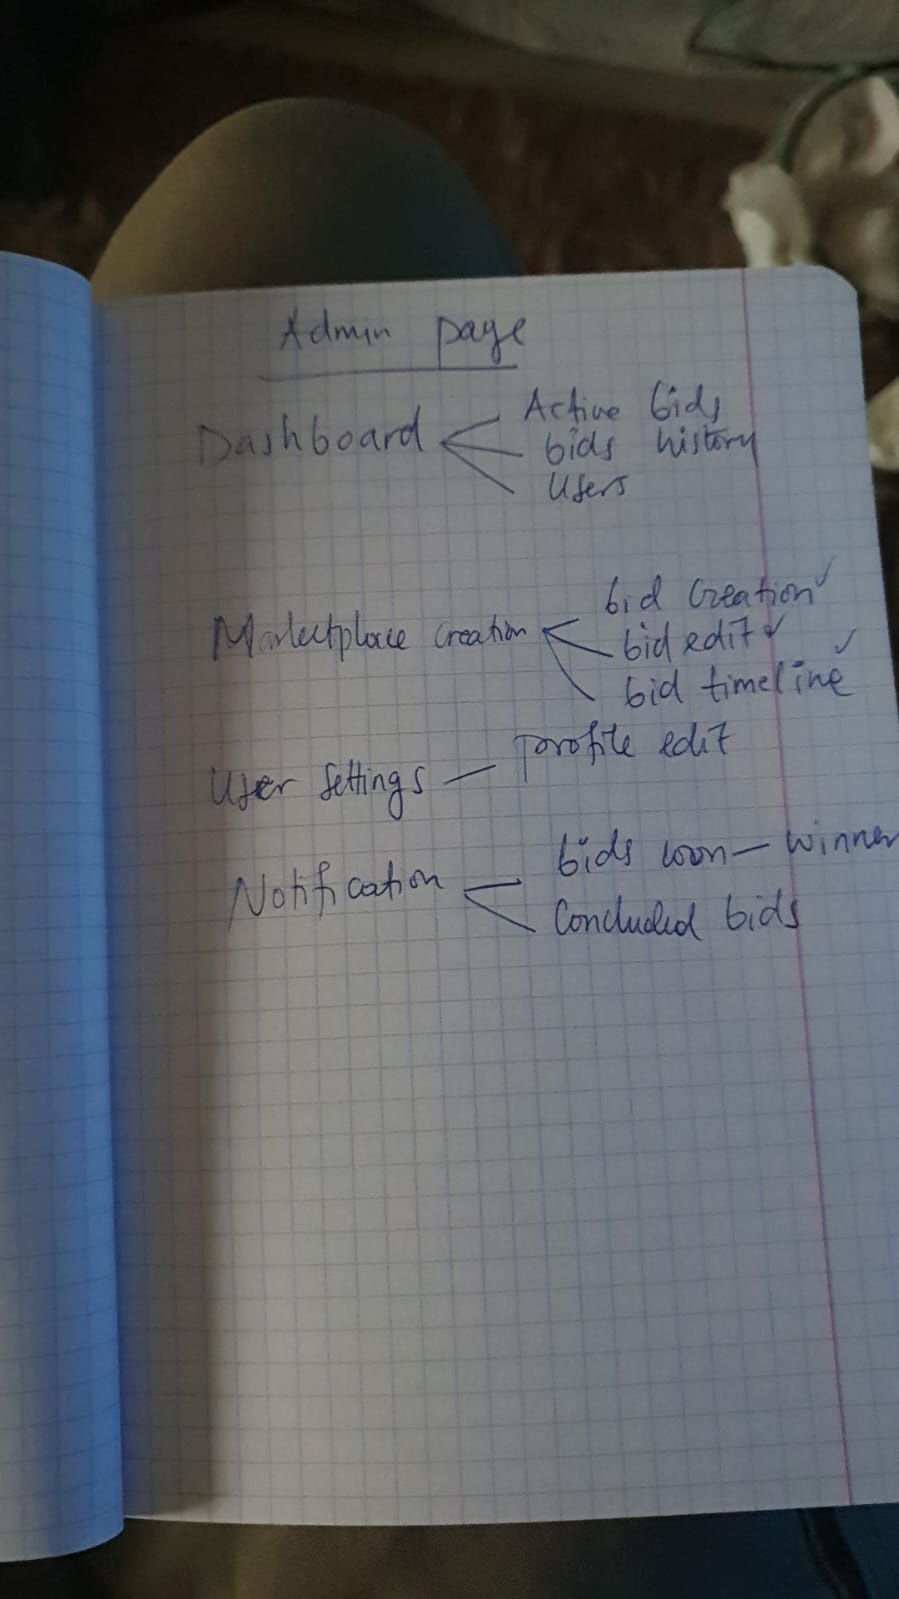 Admin page
Dashboard
Active bids
bids history
Users
Marketplace creation
bid creation ✓
bid edit ✓
bid timeline ✓
User settings — profile edit
Notification
bids won — winner
Concluded bids